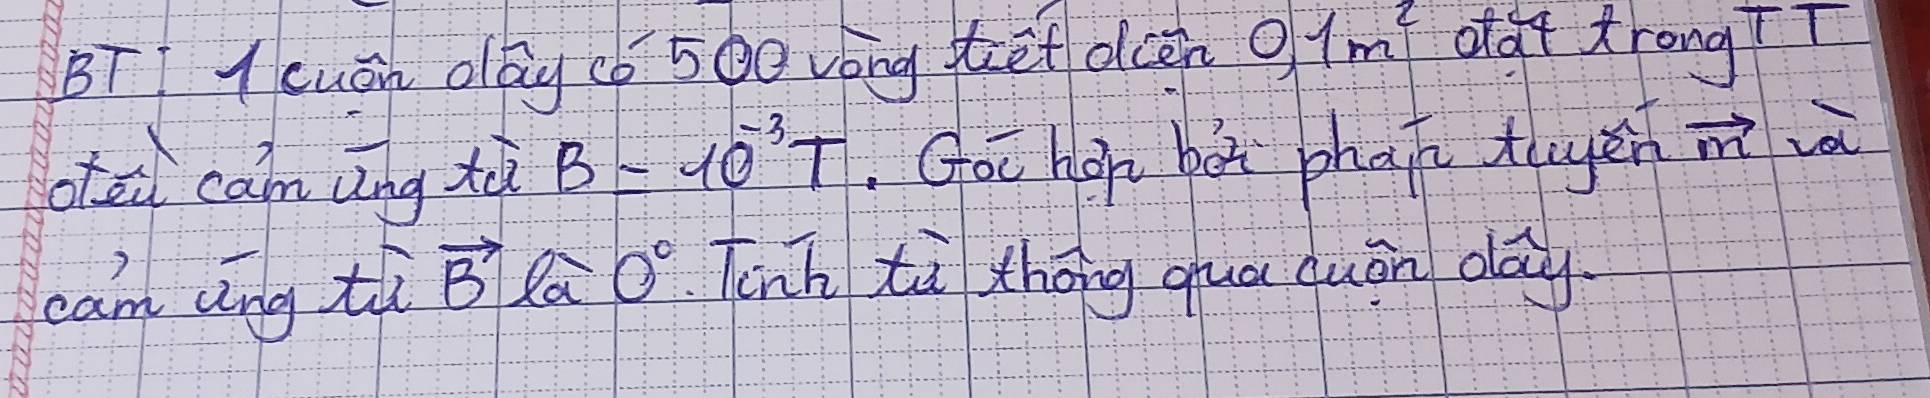 BT: 1 cuộn dây có 500 vòng tiết diện 0,1m² đặt trong TT
đều cảm ứng từ B = 10⁻³T. Góc hợp bởi pháp tuyến n⃗ và
cảm ứng từ B⃗ là 0°. Tính từ thông qua cuộn dây.